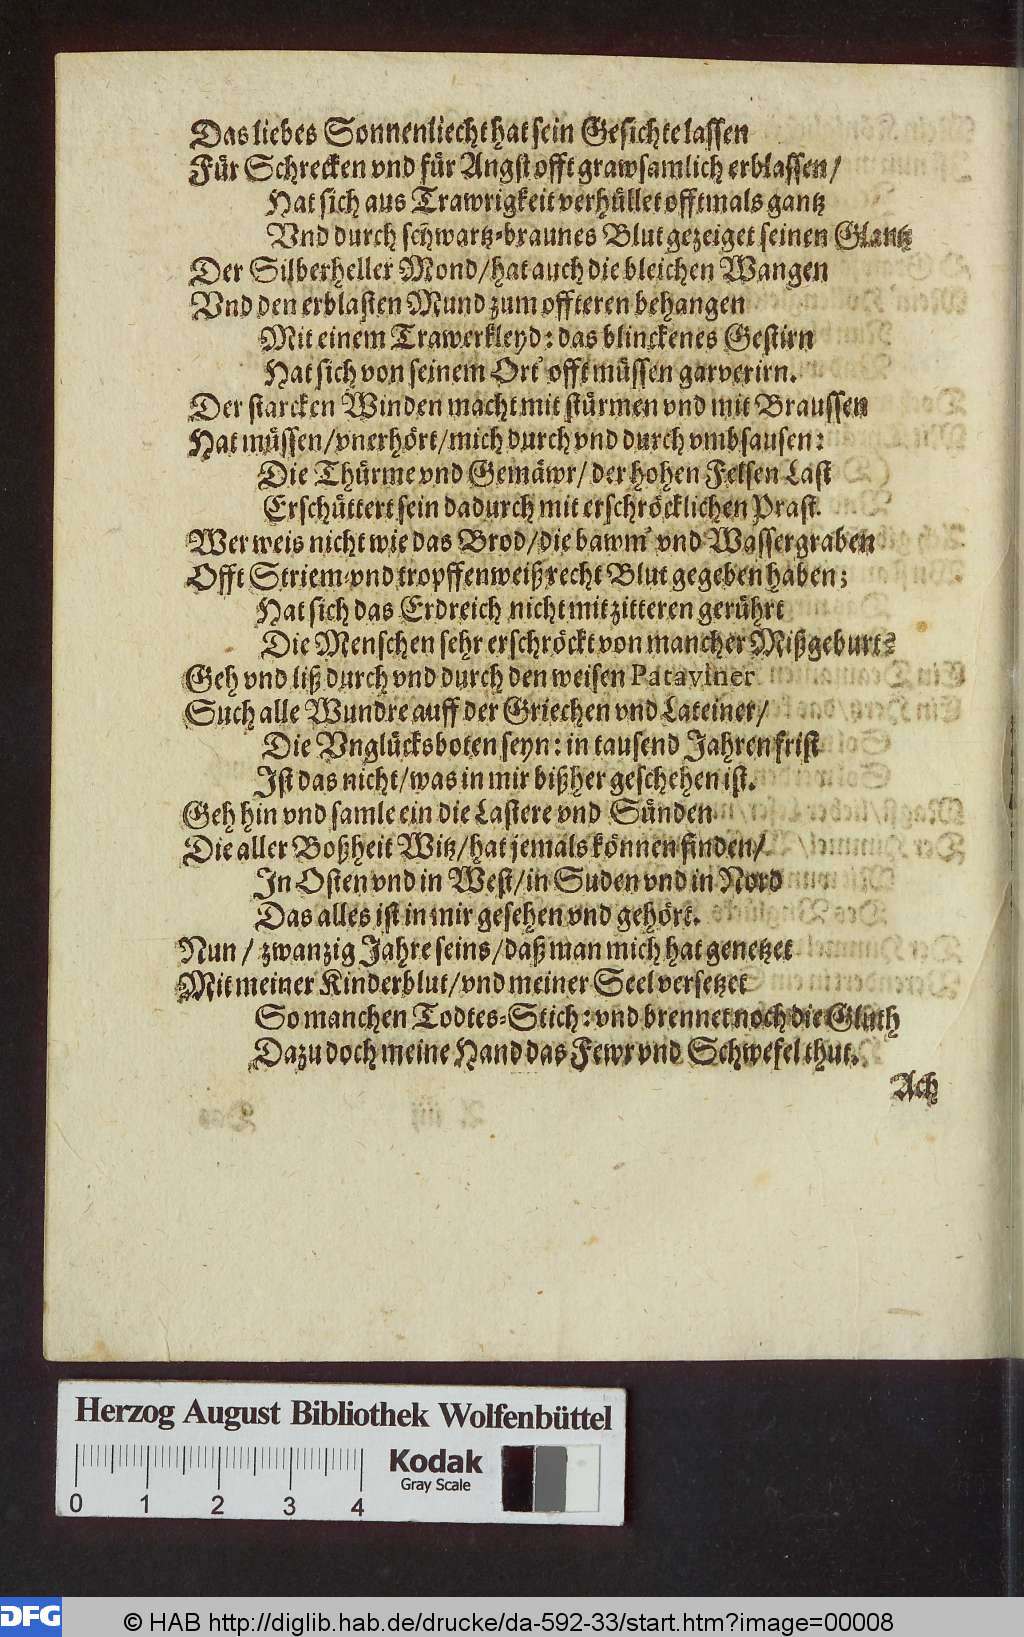 Das liebes Sonnenliecht hat sein Gesichte lassen
Für Schrecken vnd für Angst offt grawsamlich erblassen/
Hat sich aus Trawrigkeit verhüllet offtmals gantz
Vnd durch schwartz-braunes Blut gezeiget seinen Glantz
Der Silberheller Mond/hat auch die bleichen Wangen
Vnd den erblasten Mund zum offteren behangen
Mit einem Trawerkleyd: das blinckenes Gestirn
Hat sich von seinem Ort offt müssen gar verirn.
Der starcken Winden macht mit stürmen vnd mit Braussen
Hat müssen/vnerhört/mich durch vnd durch vmbsausen:
Die Thürme vnd Gemäwr/der hohen Felsen Last
Erschüttert sein dadurch mit erschröcklichen Prast.
Wer weis nicht wie das Brod/die bawm vnd Wassergraben
Offt Striem-vnd tropffenweiß recht Blut gegeben haben;
Hat sich das Erdreich nicht mit zitteren gerührt
Die Menschen sehr erschröckt von mancher Mißgeburt?
Geh vnd liß durch vnd durch den weisen Pataviner
Such alle Wundre auff der Griechen vnd Lateiner/
Die Vnglücksboten seyn: in tausend Jahren frist
Ist das nicht/was in mir bißher geschehen ist.
Geh hin vnd samle ein die Lastere vnd Sünden
Die aller Boßheit Witz/hat jemals können finden/
In Osten vnd in West/in Suden vnd in Nord
Das alles ist in mir gesehen vnd gehört.
Nun / zwanzig Jahre seins/daß man mich hat genetzet
Mit meiner Kinderblut/vnd meiner Seel versetzet
So manchen Todtes-Stich: vnd brennet noch die Gluth
Dazu doch meine Hand das Fewr vnd Schwefel thut.
Ach
Herzog August Bibliothek Wolfenbüttel
Kodak
Gray Scale
0 1 2 3 4
DFG
© HAB http://diglib.hab.de/drucke/da-592-33/start.htm?image=00008